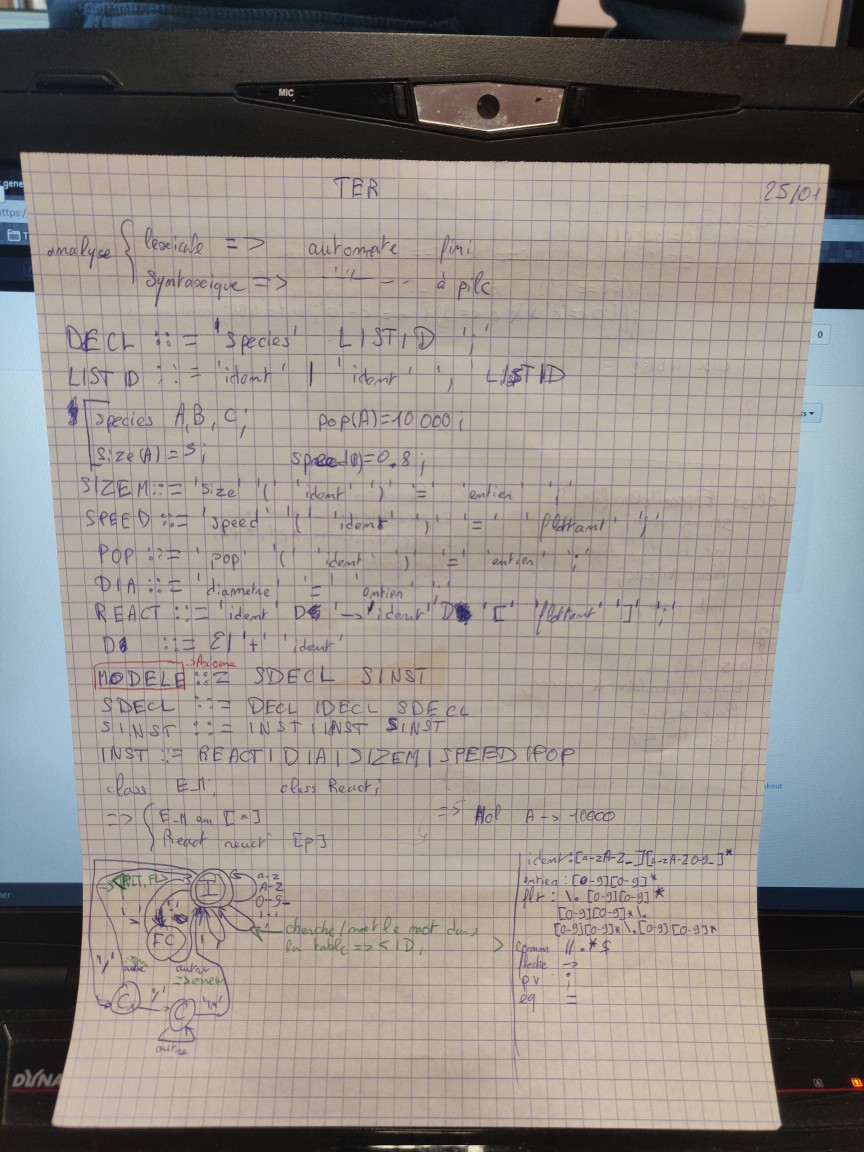 MIC
TER
25/01
analyse { lexicale => automate fini
Syntaxique => à pile
DECL ::= 'Species' LISTID ';'
LISTID ::= 'ident' | 'ident' ',' LISTID
Species A,B, C; pop(A)=10 000;
Size(A) = 5; speed( )=0.8;
SIZEM::= 'Size' '(' 'ident' ')' '=' 'entien' ';'
SPEED ::= 'speed' '(' 'ident' ')' '=' 'flottant' ';'
POP ::= 'pop' '(' 'ident' ')' '=' 'entien' ';'
DIA ::= 'diametre' '=' 'entien' ';'
REACT ::= 'ident' D '->' 'ident' D '[' 'flottant' ']' ';'
D ::= Ɛ| '+' 'ident'
->Axiome
MODELE ::= SDECL SINST
SDECL ::= DECL |DECL SDECL
SINST ::= INST | INST SINST
INST ::= REACT | DIA | SIZEM | SPEED | POP
class E_M; class React;
=> { E_M em [n] => Mol A -> 10000
React react [p]
I
a-z
A-Z
0-9_
FC
cherche/met le mot dans
la table => < ID,
autre
=> erreur
C
'/'
C
autre
ident:[a-zA-Z_][a-zA-Z0-9_]*
entien: [0-9][0-9]*
flt : \. [0-9][0-9]*
[0-9][0-9]*\.
[0-9][0-9]*\.[0-9][0-9]*
comm //.*$
fleche ->
pv ;
eg =